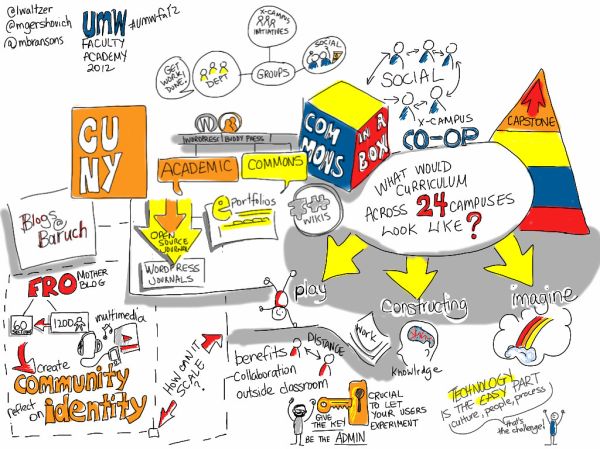 @lwaltzer
@mgershovich
@mbransons
UMW
FACULTY
ACADEMY
2012
#umwfa12
X-CAMPUS
INITIATIVES
GET
WORK
DONE!
DEPT
GROUPS
SOCIAL
SOCIAL
X-CAMPUS
CO-OP
CAPSTONE
CU
NY
WORDPRESS
BUDDYPRESS
ACADEMIC
COMMONS
COM
MONS
IN A
BOX
WHAT WOULD
CURRICULUM
ACROSS 24 CAMPUSES
LOOK LIKE?
ePortfolios
WIKIS
OPEN
SOURCE
JOURNAL
WORDPRESS
JOURNALS
Blogs@
Baruch
FRO MOTHER
BLOG
60
1200
multimedia
create
community
reflect on identity
HOW CAN IT
SCALE
?
play
constructing
imagine
DISTANCE
Work
Knowledge
benefits
-collaboration
outside classroom
GIVE
THE KEY
BE THE ADMIN
CRUCIAL
TO LET
YOUR USERS
EXPERIMENT
TECHNOLOGY
IS THE EASY PART
culture, people, process
that's
the challenge!